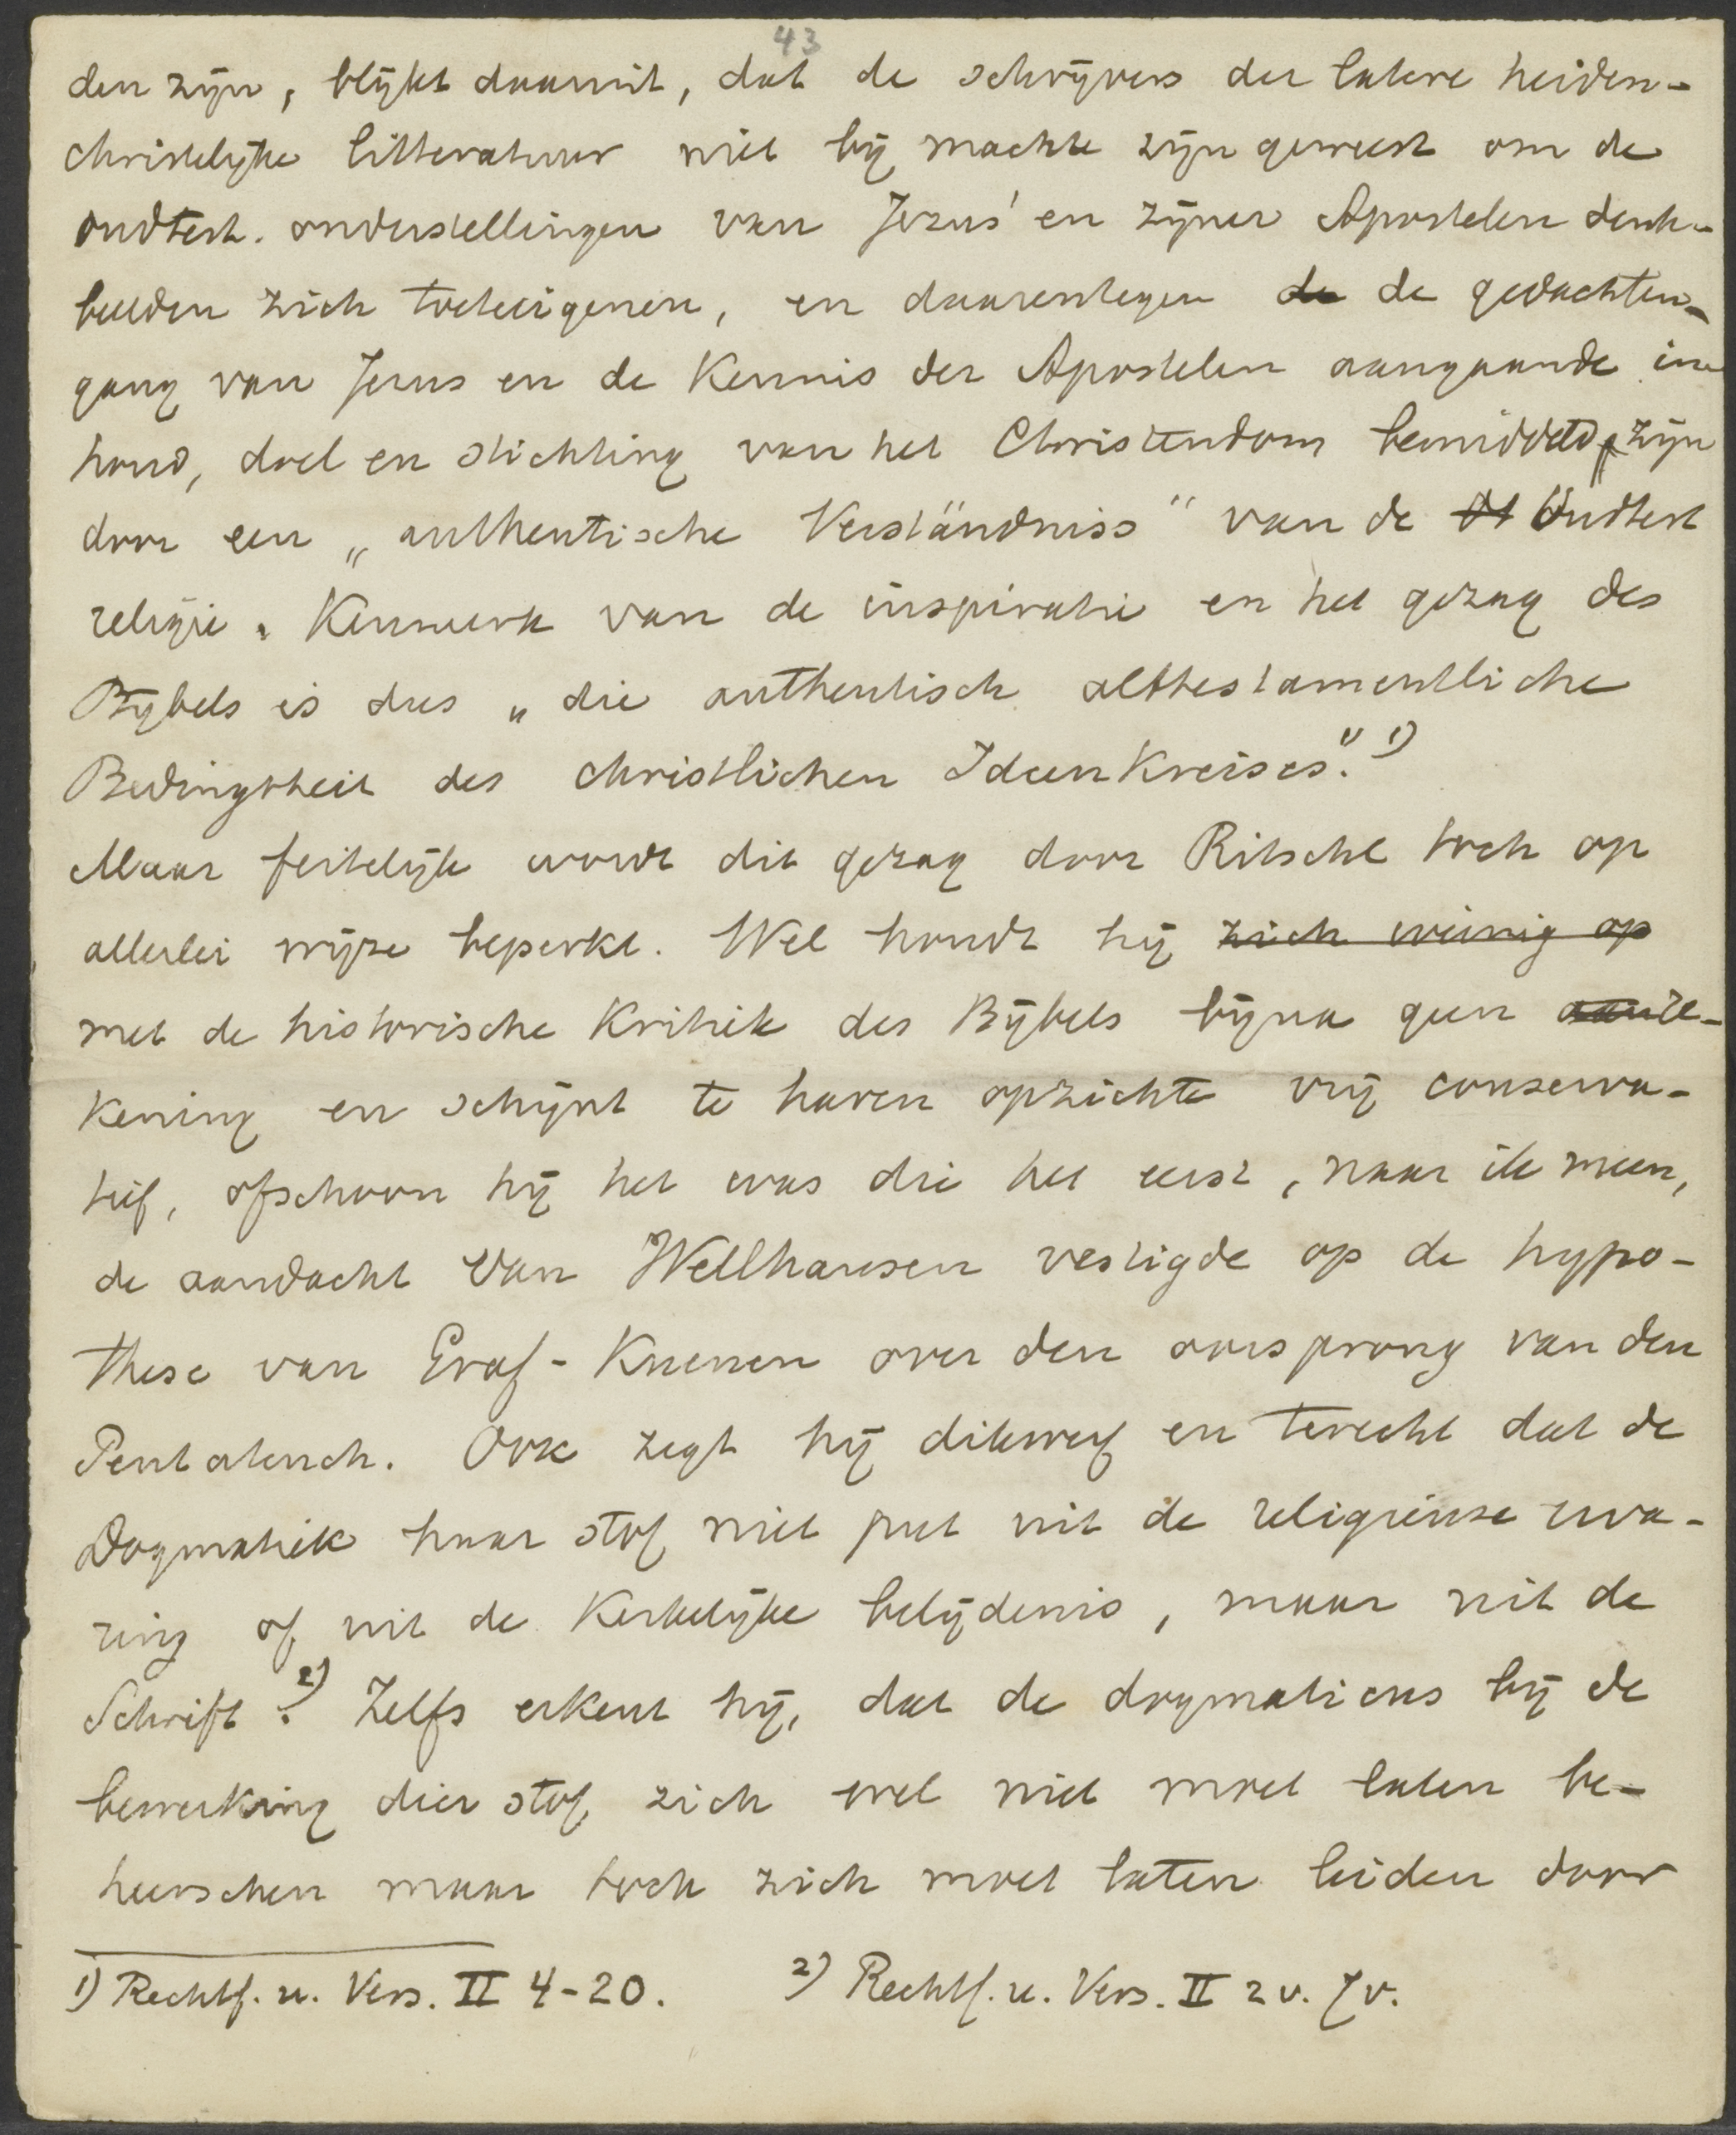 43
den zijn, blijkt daaruit, dat de schrijvers der latere heiden-
christelijke litteratuur niet bij machte zijn geweest om de
oudtest. onderstellingen van Jezus' en zijner Apostelen denk-
beelden zich toeteëigenen, en daarentegen de de gedachten-
gang van Jezus en de Kennis der Apostelen aangaande in-
houd, doel en stichting van het Christendom bemiddeld zijn
door een „authentische Verständniss" van de Ot Oudtest
religie. Kenmerk van de inspiratie en het gezag des
Bijbels is dus „die authentisch alttestamentliche
Bedingtheit des christlichen Ideenkreises." 1)
Maar feitelijk wordt dit gezag door Ritschl toch op
allerlei wijze beperkt. Wel houdt hij zich weinig op
met de historische Kritiek des Bijbels bijna geen
kening en schijnt te haren opzichte vrij conserva-
tief, ofschoon hij het was die het eerst, naar ik meen,
de aandacht van Wellhausen vestigde op de hypo-
these van Graf-Kuenen over den oorsprong van den
Pentateuch. Ook zegt hij dikwerf en terecht dat de
Dogmatiek haar stof niet put uit de religieuse erva-
ring of uit de Kerkelijke belijdenis, maar uit de
Schrift. 2) Zelfs erkent hij, dat de dogmaticus bij de
bewerking dier stof zich wel niet moet laten be-
heerschen maar toch zich moet laten leiden door
1) Rechtf. u. Vers. II 4-20. 2) Rechtf. u. Vers. II 2v. 7v.